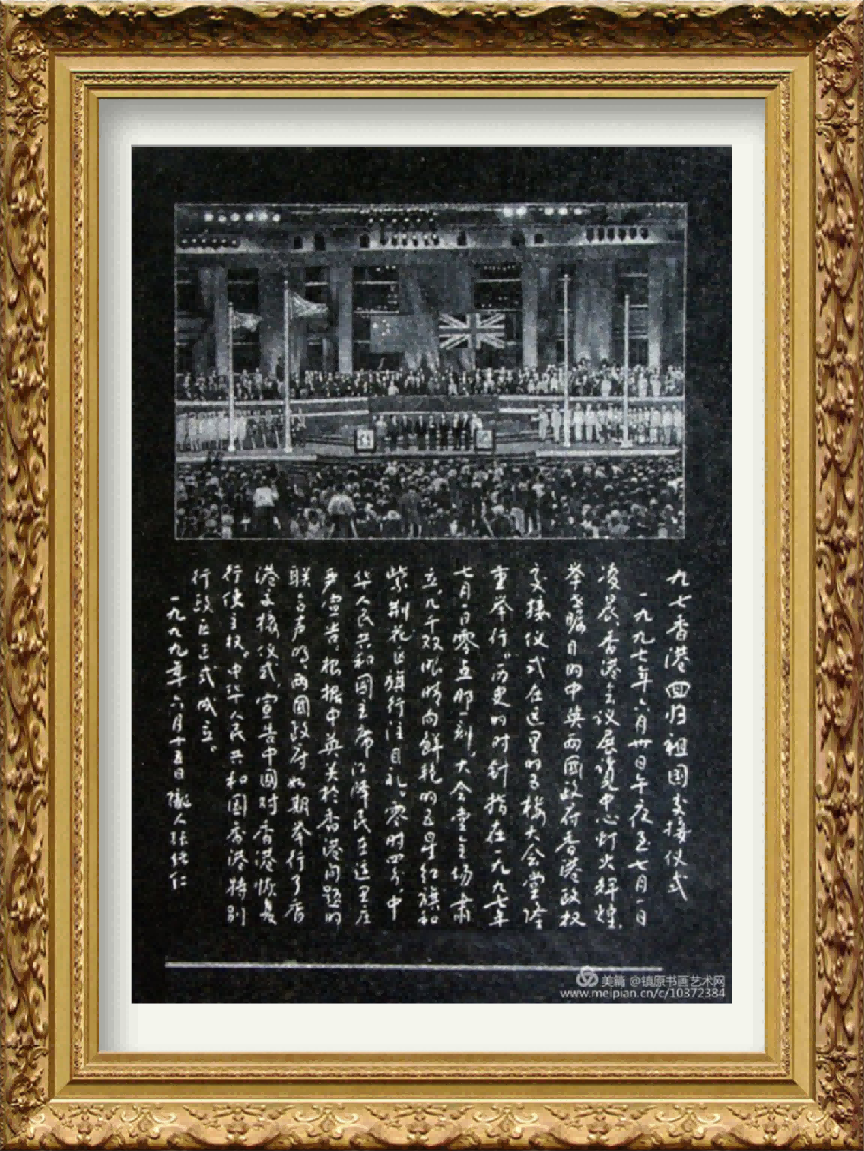 九七香港回归祖国交接仪式
一九九七年六月卅日午夜至七月一日
凌晨,香港会议展览中心灯火辉煌,
举世瞩目的中英两國政府香港政权
交接仪式在这里的五楼大会堂隆
重举行。历史的时针指在一九九七年
七月一日零点那一刻,大会堂全场肃
立,几千双眼睛向鲜艳的五星红旗和
紫荆花区旗行注目礼。零时四分,中
华人民共和国主席江泽民在这里庄
严宣告:根据中英关於香港问题的
联合声明,两國政府如期举行了香
港交接仪式,宣告中國对香港恢复
行使主权。中华人民共和国香港特别
行政区正式成立。
一九九九年六月十五日 張绍仁
美篇 @镇原书画艺术网
www.meipian.cn/c/10372384